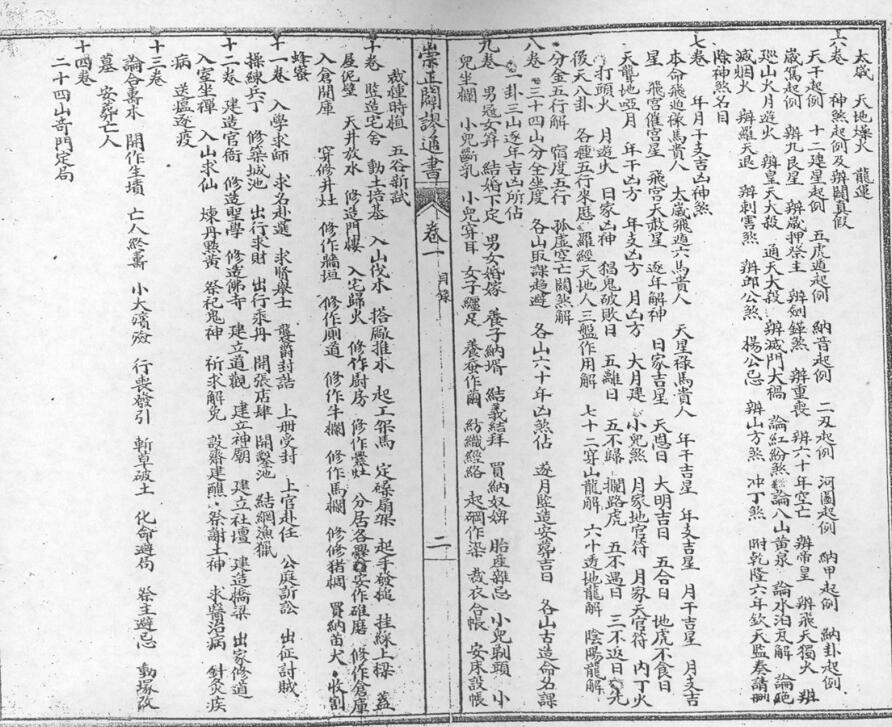 太歲　天地燥火　龍運
六卷　神煞起例及辨闢真假
天干起例　十二建星起例　五虎遁起例　納音起例　二刄起例　河圖起例　納甲起例　納卦起例
歲駕起例　辨九良星　辨歲押祭主　辨劍鋒煞　辨重喪　辨六十年空亡　辨帝星　辨飛天獨火　辨
廵山火月遊火　辨皇天大殺　通天大殺　辨滅門大禍　論紅紗煞　論八山黃泉　論水泊瓦解　論絕
滅烟火　辨羅天退　辨刺害煞　辨郎公煞　楊公忌　辨山方煞　冲丁煞　附乾隆六年欽天監奏請刪
除神煞名目
七卷　年月干支吉凶神煞
本命飛遁祿馬貴人　太歲飛遁六馬貴人　天星祿馬貴人　年干吉星　年支吉星　月干吉星　月支吉
星　飛宮催官星　飛宮天赦星　逐年解神　日家吉星　天恩日　大明吉日　五合日　地虎不食日
天聾地啞日　年干凶方　年支凶方　月凶方　大月建　小兒煞　月家地官符　月家天官符　內丁火
打頭火　月遊火　日家凶神　猖鬼破敗日　五離日　五不歸　攔路虎　五不遇日　三不返日　先
後天八卦　各種五行來歷　羅經天地人三盤作用解　七十二穿山龍解　六十透地龍解　陰陽龍解
分金五行解　宿度五行　孤虛空亡關煞解
八卷　二十四山分全坐度　各山取課趨避　各山六十年凶煞佔　逐月監造安葬吉日　各山古造命名課
一卦三山逐年吉凶所佔
九卷　男冠女笄　結婚下定　男女婚嫁　養子納壻　結義結拜　買納奴婢　胎產雜忌　小兒剃頭　小
兒坐欄　小兒斷乳　小兒穿耳　女子纏足　養蚕作繭　紡織經絡　起碙作染　裁衣合帳　安床設帳
崇正闢謬通書　卷一　目錄　二
栽種時植　五谷新試
十卷　監造宅舍　動土培基　入山伐木　搭廠推木　起工架馬　定磉扇架　起手發槌　挂綵上樑　蓋
屋泥壁　天井放水　修造門樓　入宅歸火　修作厨房　修作㸑灶　分居各㸑　安作碓磨　修作倉庫
入倉開庫　穿修井灶　修作牆垣　修作厠道　修作牛欄　修作馬欄　修修猪椆　買納苗犬　收割
蜂蜜
十一卷　入學求師　求名赴選　求賢舉士　襲爵封誥　上册受封　上官赴任　公庭訴訟　出征討賊
操練兵丁　修築城池　出行求財　出行乘舟　開張店肆　開鑿池　結網漁獵
十二卷　建造官衙　修造聖學　修造佛寺　建立道觀　建立神廟　建立社壇　建造橋梁　出家修道
入室坐禪　入山求仙　煉丹㸃黃　祭祀鬼神　祈求解免　設齋建醮　祭謝土神　求醫治病　針灸疾
病　送瘟逐疫
十三卷
論合壽木　開作生墳　亡人終壽　小大殯殮　行喪發引　斬草破土　化命避局　祭主避忌　動塚改
墓　安葬亡人
十四卷
二十四山奇門定局